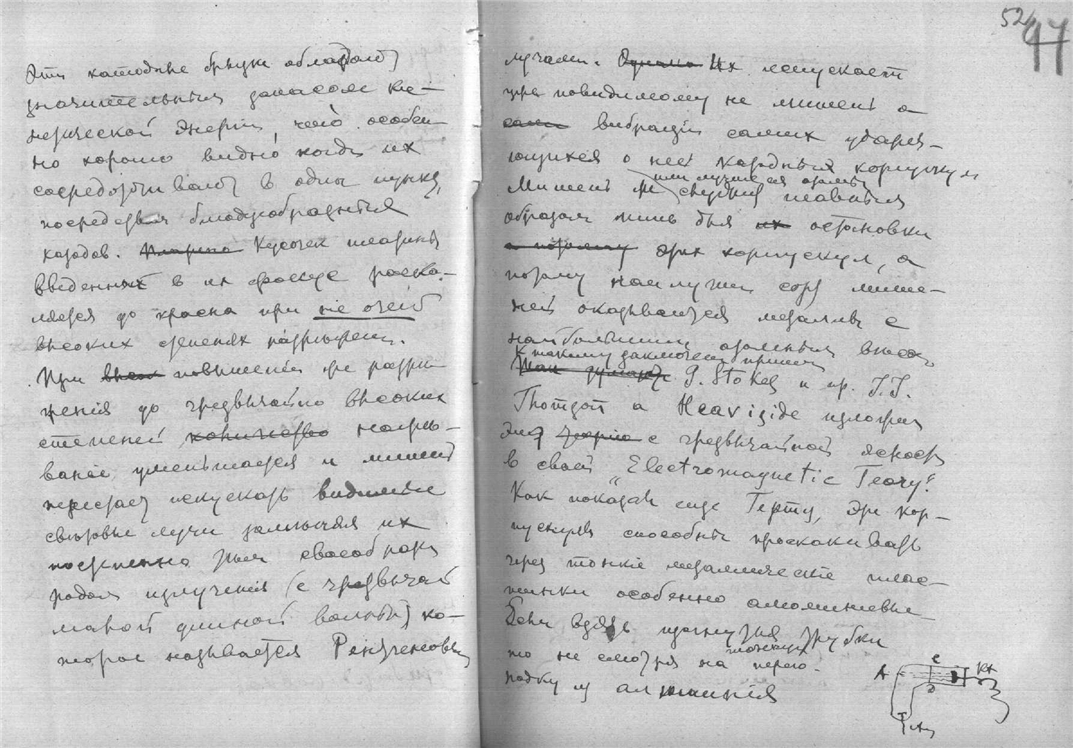 Эти катодные брызги обладают
значительным запасом ки-
нетической энергии, что особен-
но хорошо видно когда их
сосредотачивают в один пункт,
посредством блюдцеобразных
катодов. Платино Кусочек платины
введенный в их фокус раска-
ляется до красна при не очень
высоких степенях разрежения.
При высок повышении же разре
жения до чрезвычайно высоких
степеней количество нагре-
вание, уменьшается и мишень
перестает испускать видимые
световые лучи заменяя их
постепенно тем своеобраз
родом излучения (с чрезвычай
малой длиной волны) ко-
торое называется Рентгеновым
52
97
лучами. Однако Их испускает
уже повидимому не мишень а
сами вибрации самих ударя-
ющихся о нее катодных корпускул
или лучше ея атомы
Мишень служит главным
образом лишь для их остановки
а потому этих корпускул, а
потому наилучши сорт мише-
ней оказывается металлы с
наибольшим атомным весом
К такому заключению пришли
Так думают G. Stokes и пр. J.J.
Thomson а Heaviside изложил
эту теорію с чрезвычайной ясность
в своей "Electromagnetic Teory".
Как показал еще Герту, эти кор-
пускулы способны проскакивать
через тонкие металлические плас-
тинки особенно алюминиевые
Если взять изогнутыя трубки
то не смотря на тонкую перего-
родку из алюминия
A C D Кт Ан